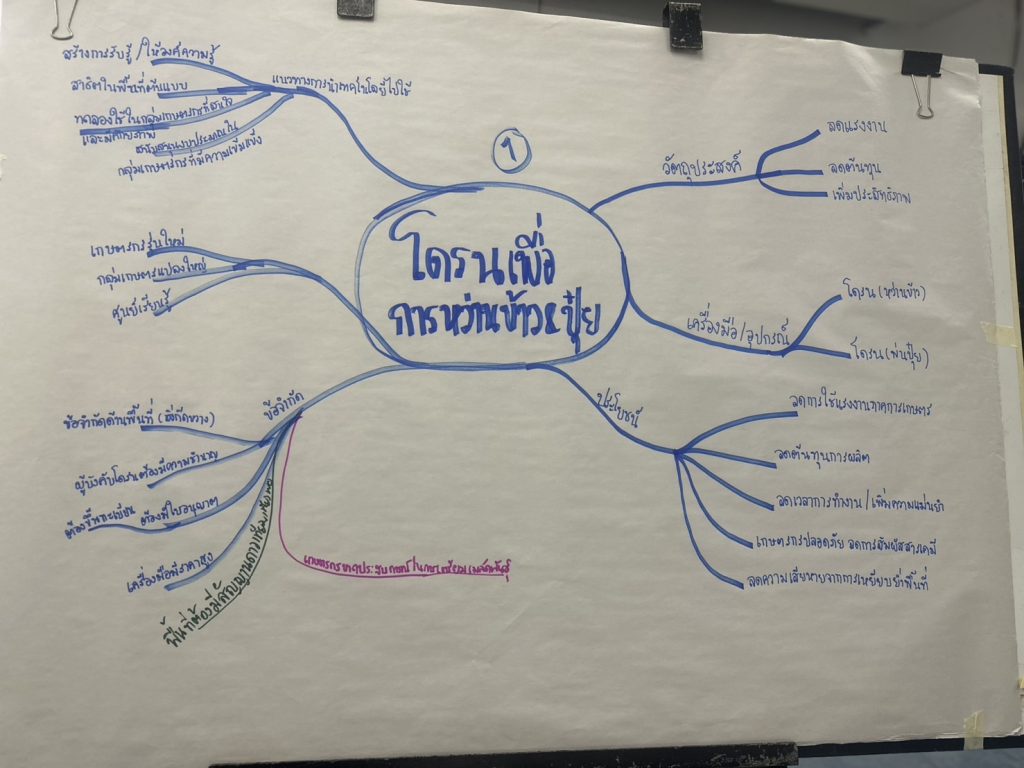 ๑
โดรนเพื่อ
การหว่านข้าว&ปุ๋ย
วัตถุประสงค์
ลดแรงงาน
ลดต้นทุน
เพิ่มประสิทธิภาพ
เครื่องมือ/อุปกรณ์
โดรน (หว่านข้าว)
โดรน (พ่นปุ๋ย)
ประโยชน์
ลดการใช้แรงงานภาคการเกษตร
ลดต้นทุนการผลิต
ลดเวลาการทำงาน / เพิ่มความแม่นยำ
เกษตรกรปลอดภัย ลดการสัมผัสสารเคมี
ลดความเสียหายจากการเหยียบย่ำพื้นที่
ข้อจำกัด
ข้อจำกัดด้านพื้นที่ (สิ่งกีดขวาง)
ผู้บังคับโดรนต้องมีความชำนาญ
ต้องขึ้นทะเบียน ต้องมีใบอนุญาต
เครื่องมือมีราคาสูง
พื้นที่ต้องมีสัญญาณดาวเทียม
เกษตรกรขาดประสบการณ์ในการเตรียมเมล็ดพันธุ์
เกษตรกรรุ่นใหม่
กลุ่มเกษตรแปลงใหญ่
ศูนย์เรียนรู้
แนวทางการนำเทคโนโลยีไปใช้
สร้างการรับรู้ / ให้องค์ความรู้
สาธิตในพื้นที่ต้นแบบ
ทดลองใช้ในกลุ่มเกษตรกรที่สนใจ
และมีศักยภาพ
สนับสนุนงบประมาณใน
กลุ่มเกษตรกรที่มีความเข้มแข็ง